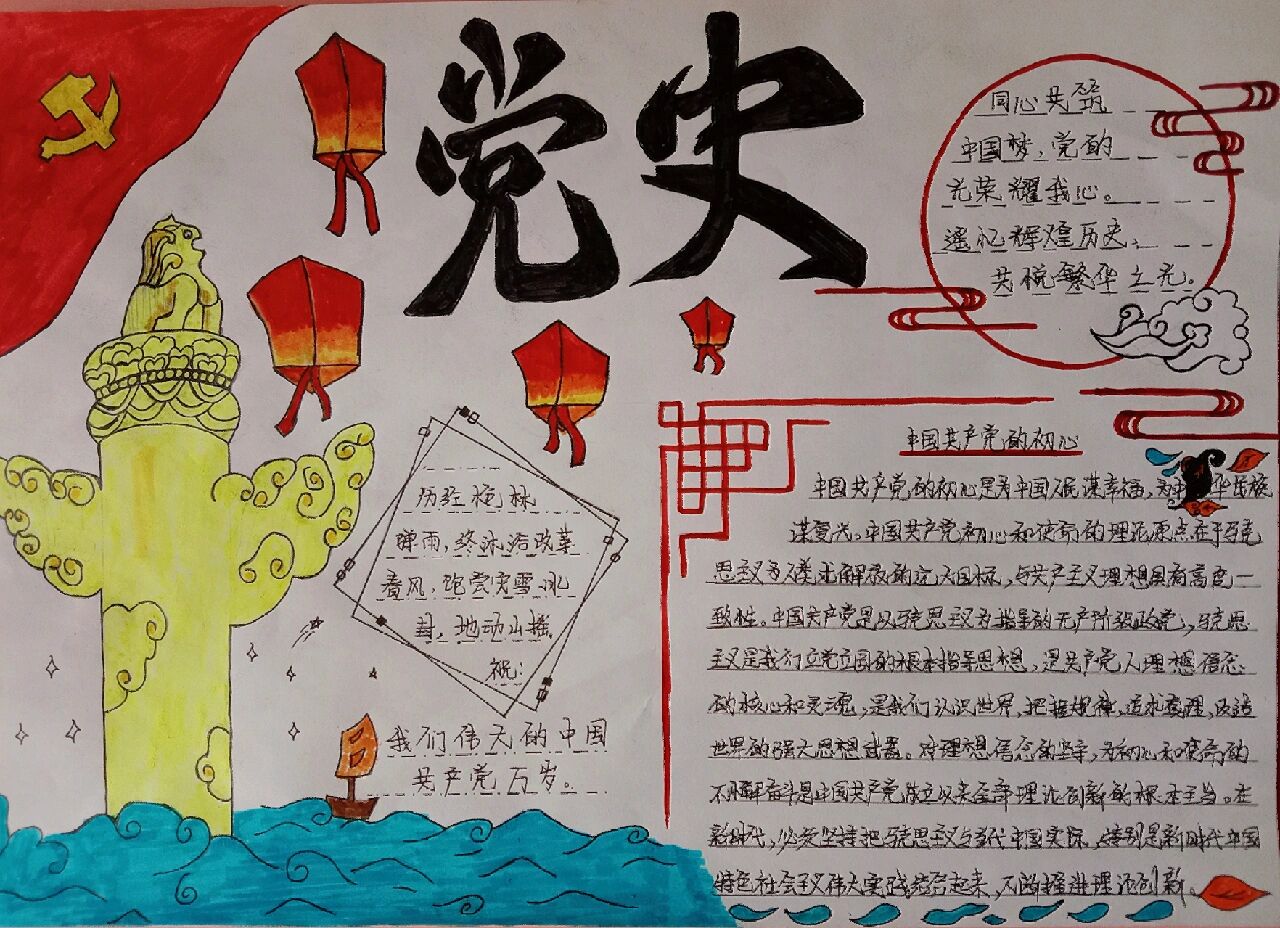 党史
同心共筑
中国梦，党的
光荣耀我心。
遥忆辉煌历史，
共悦繁华之光。
历经枪林
弹雨，终沐浴改革
春风，饱尝灾雪冰
封，地动山摇
祝：
我们伟大的中国
共产党万岁。
中国共产党的初心
中国共产党的初心是为中国人民谋幸福，为中华民族
谋复兴。中国共产党初心和使命的理论原点在于马克
思主义为人类求解放的宏大目标，与共产主义理想具有高度一
致性。中国共产党是以马克思主义为指导的无产阶级政党，马克思
主义是我们立党立国的根本指导思想，是共产党人理想信念
的核心和灵魂，是我们认识世界、把握规律、追求真理、改造
世界的强大思想武器。对理想信念的坚守，为初心和使命的
不懈奋斗是中国共产党成立以来全部理论创新的根本主旨。在
新时代，必须坚持把马克思主义与当代中国实际，特别是新时代中国
特色社会主义伟大实践结合起来，不断推进理论创新。